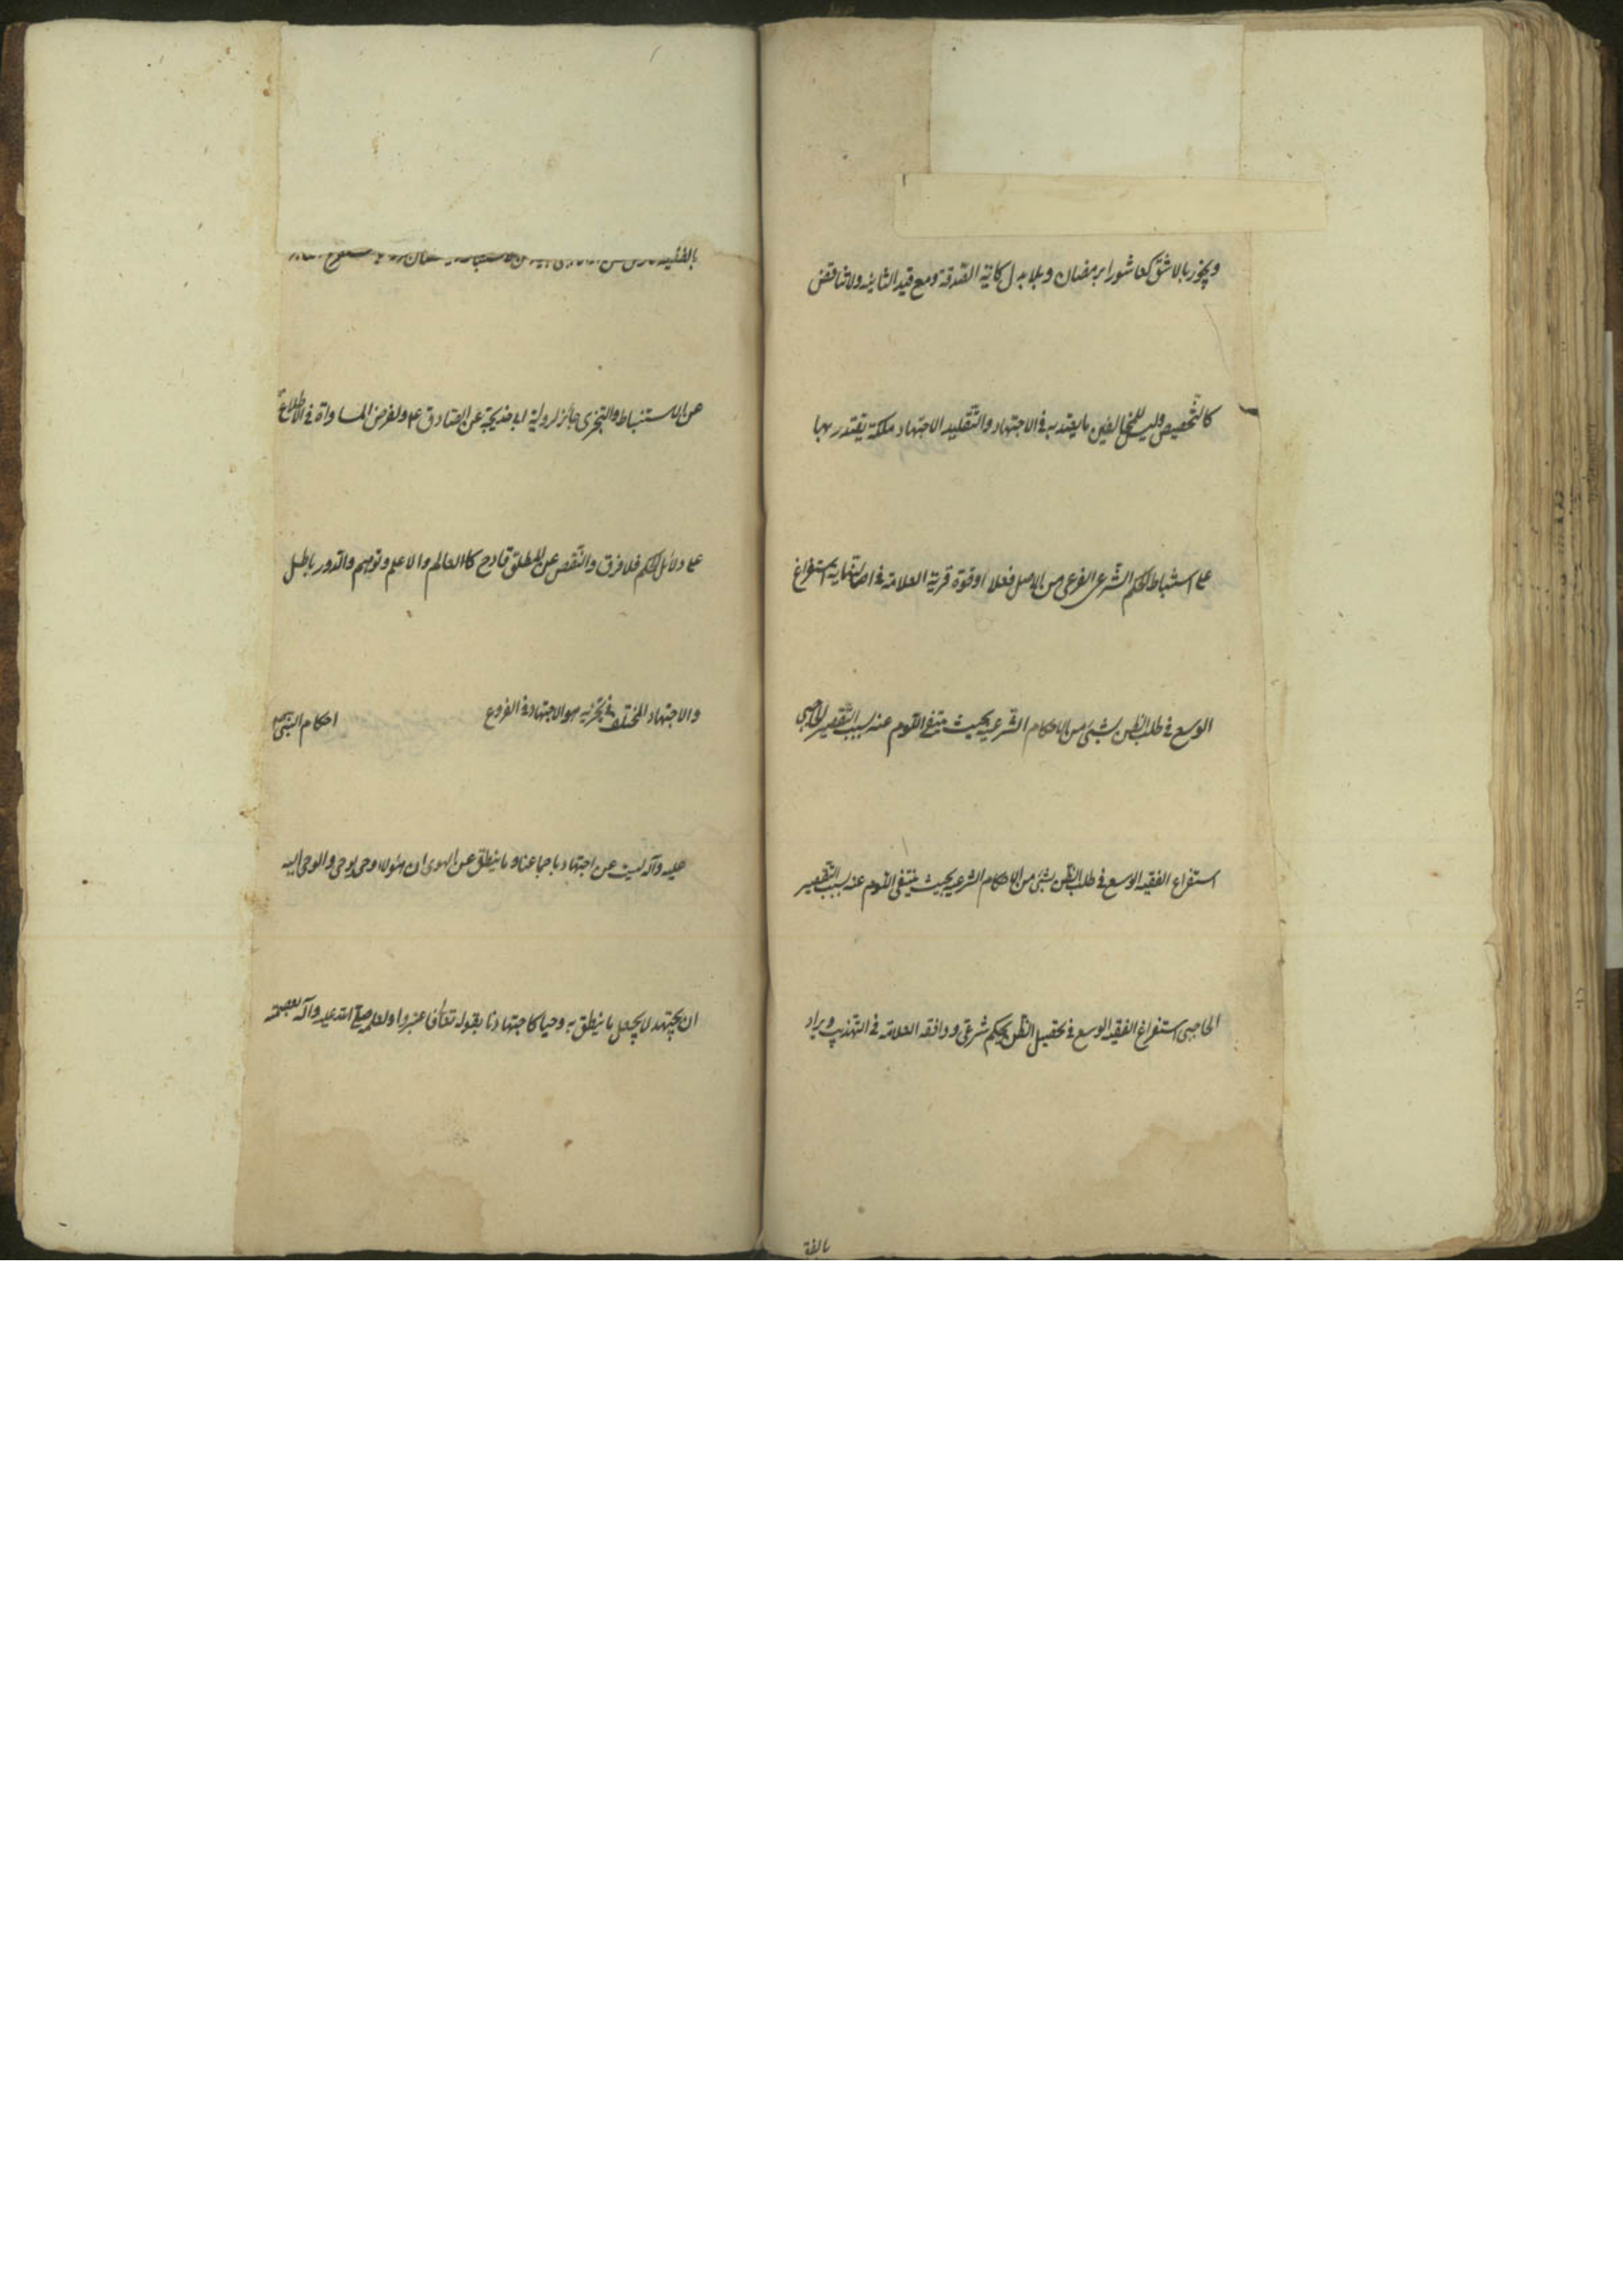 ويجوز بالاشق كعاشورا برمضان وبلا بدل كاية الصدقة ومع قيد التابيد ولا تناقض
كالتخصيص وليس للمخالفين ما يعتد به في الاجتهاد والتقليد الاجتهاد ملكة يقتدر بها
على استنباط الحكم الشرعى الفرعى من الاصل فعلا او قوة قريبة العلامة في استفراغ
الوسع في طلب الظن بشئ من الاحكام الشرعية بحيث ينتفى اللوم عنه بسبب التقصير
استفراغ الفقيه الوسع في طلب الظن بشئ من الاحكام الشرعية بحيث ينتفى اللوم عنه بسبب التقصير
الحاجبى استفراغ الفقيه الوسع في تحصيل الظن بحكم شرعى ووافقه العلامة في التهذيب ويراد
بالفقيه
عن الاستنباط والتجزى جائز لرواية ابى خديجة عن الصادق ع ولفرض المساواة في الاطلاع
على دلائل الحكم فلا فرق والنقص عن المطلق قادح كالعالم والاعلم وتوهم والدور باطل
والاجتهاد المختلف في تجزئيه هو الاجتهاد في الفروع احكام النبى
عليه وآله ليست عن اجتهاد باجماعنا وما ينطق عن الهوى ان هو الا وحى يوحى والوحى اليه
ان يجتهد لا يجعل ما ينطق به وحيا كاجتهادنا بقوله تعالى فاعتبروا ولعلمه صلى الله عليه وآله بعصمته